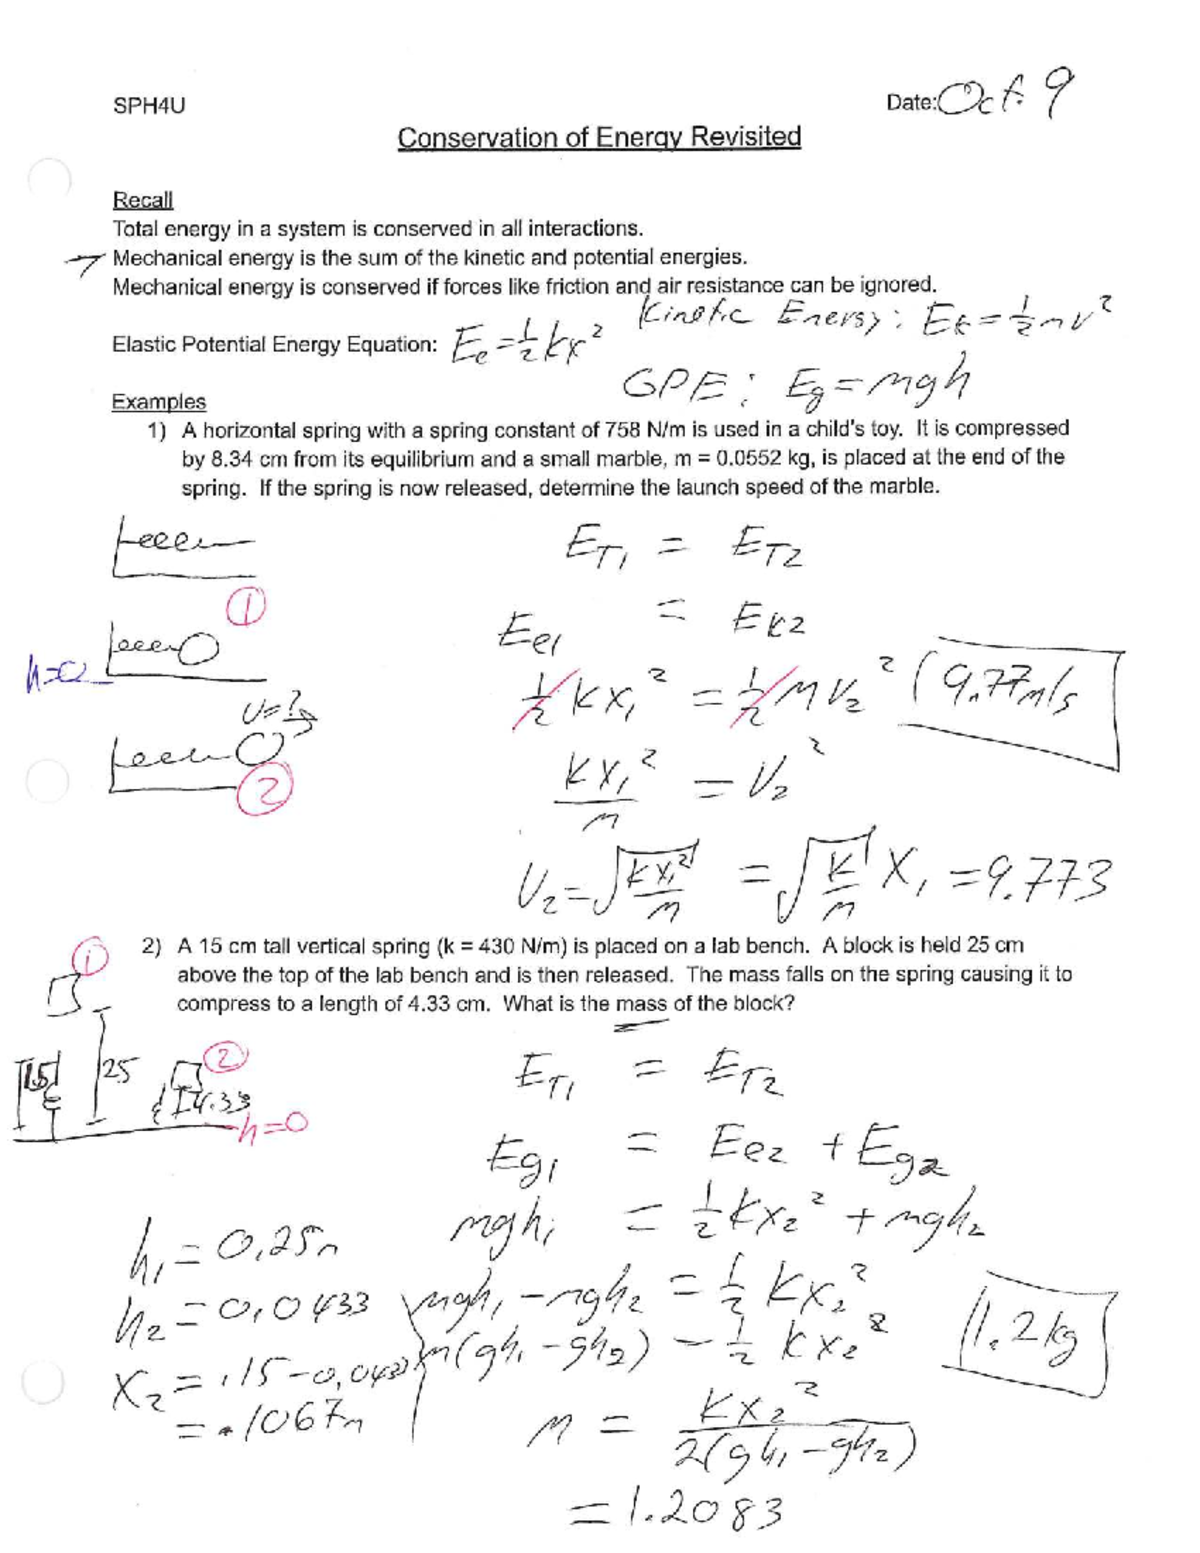 SPH4U
Date: Oct. 9
Conservation of Energy Revisited
Recall
Total energy in a system is conserved in all interactions.
Mechanical energy is the sum of the kinetic and potential energies.
Mechanical energy is conserved if forces like friction and air resistance can be ignored.
Kinetic Energy: Ek = 1/2 mv²
Elastic Potential Energy Equation: Ee = 1/2 kx²
GPE: Eg = mgh
Examples
1) A horizontal spring with a spring constant of 758 N/m is used in a child's toy. It is compressed
by 8.34 cm from its equilibrium and a small marble, m = 0.0552 kg, is placed at the end of the
spring. If the spring is now released, determine the launch speed of the marble.
ET1 = ET2
1
Ee1 = Ek2
h=0
1/2 kx1² = 1/2 mv2²
9.77m/s
v=?
kx1²/m = v2²
2
v2 = √(kx1²/m) = √(k/m) x1 = 9.773
2) A 15 cm tall vertical spring (k = 430 N/m) is placed on a lab bench. A block is held 25 cm
above the top of the lab bench and is then released. The mass falls on the spring causing it to
compress to a length of 4.33 cm. What is the mass of the block?
1
ET1 = ET2
15
25
2
4.33
h=0
Eg1 = Ee2 + Eg2
mgh1 = 1/2 kx2² + mgh2
h1 = 0.25m
mgh1 - mgh2 = 1/2 kx2²
h2 = 0.0433
m(gh1 - gh2) = 1/2 kx2²
1.2kg
x2 = .15 - 0.0433
= .1067m
m = kx2²/2(gh1 - gh2)
= 1.2083